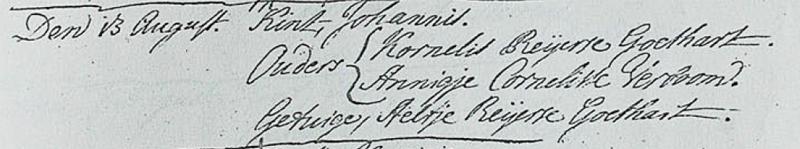 Den 13 August. Kint, Johannis.
Ouders { Kornelis Reijerse Goethart.
Annigje Cornelisse Verboom.
Getuige, Aeltje Reijerse Goethart.